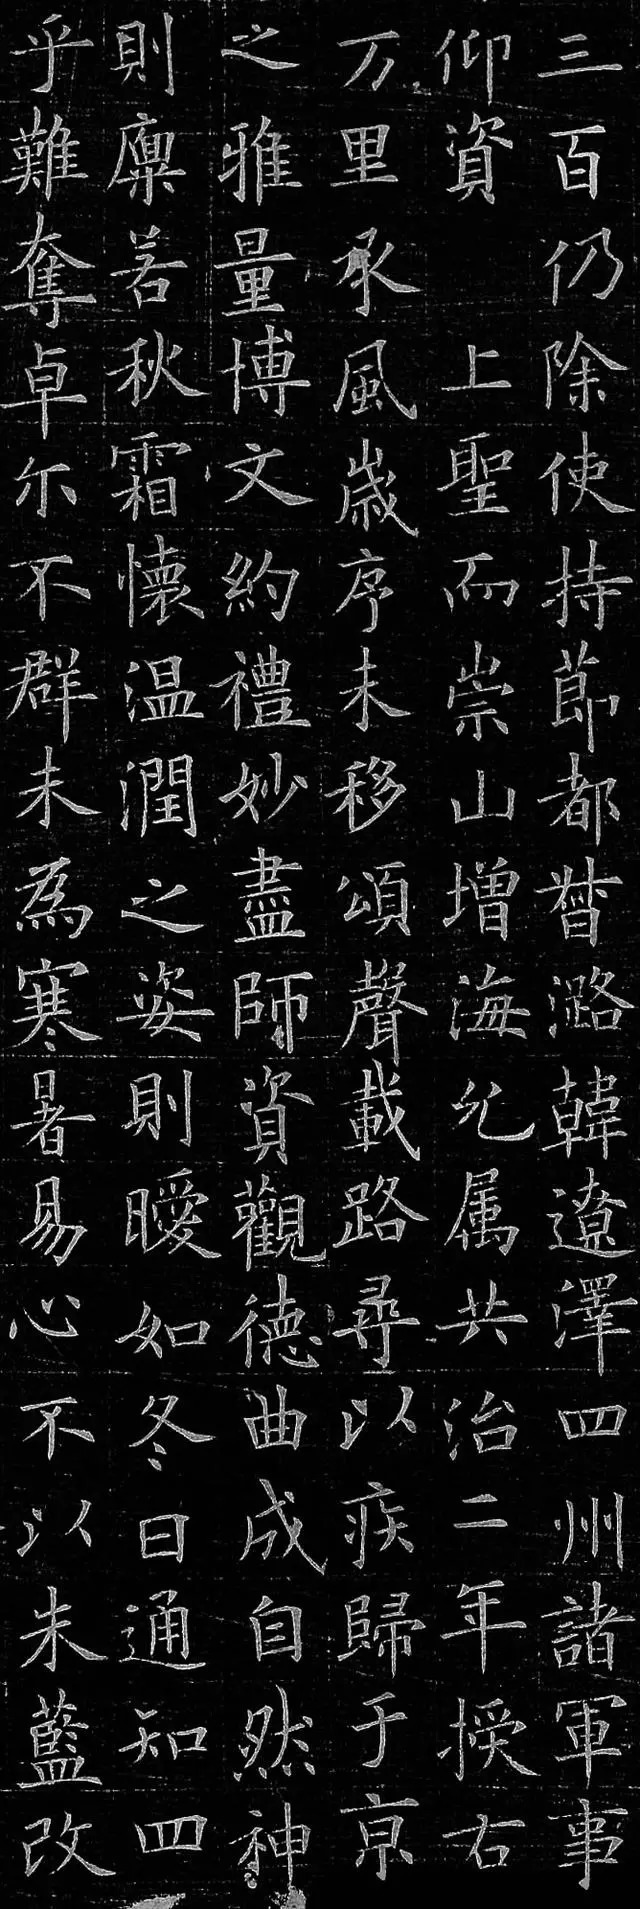 三百仍除使持節都督潞韓遼澤四州諸軍事
仰資上聖而崇山增海允属共治二年授右
万里承風歲序未移頌聲載路尋以疾歸于京
之雅量博文約禮妙盡師資觀德曲成自然神
則凜若秋霜懷温潤之姿則曖如冬日通知四
乎難奪卓尔不群未為寒暑易心不以朱藍改